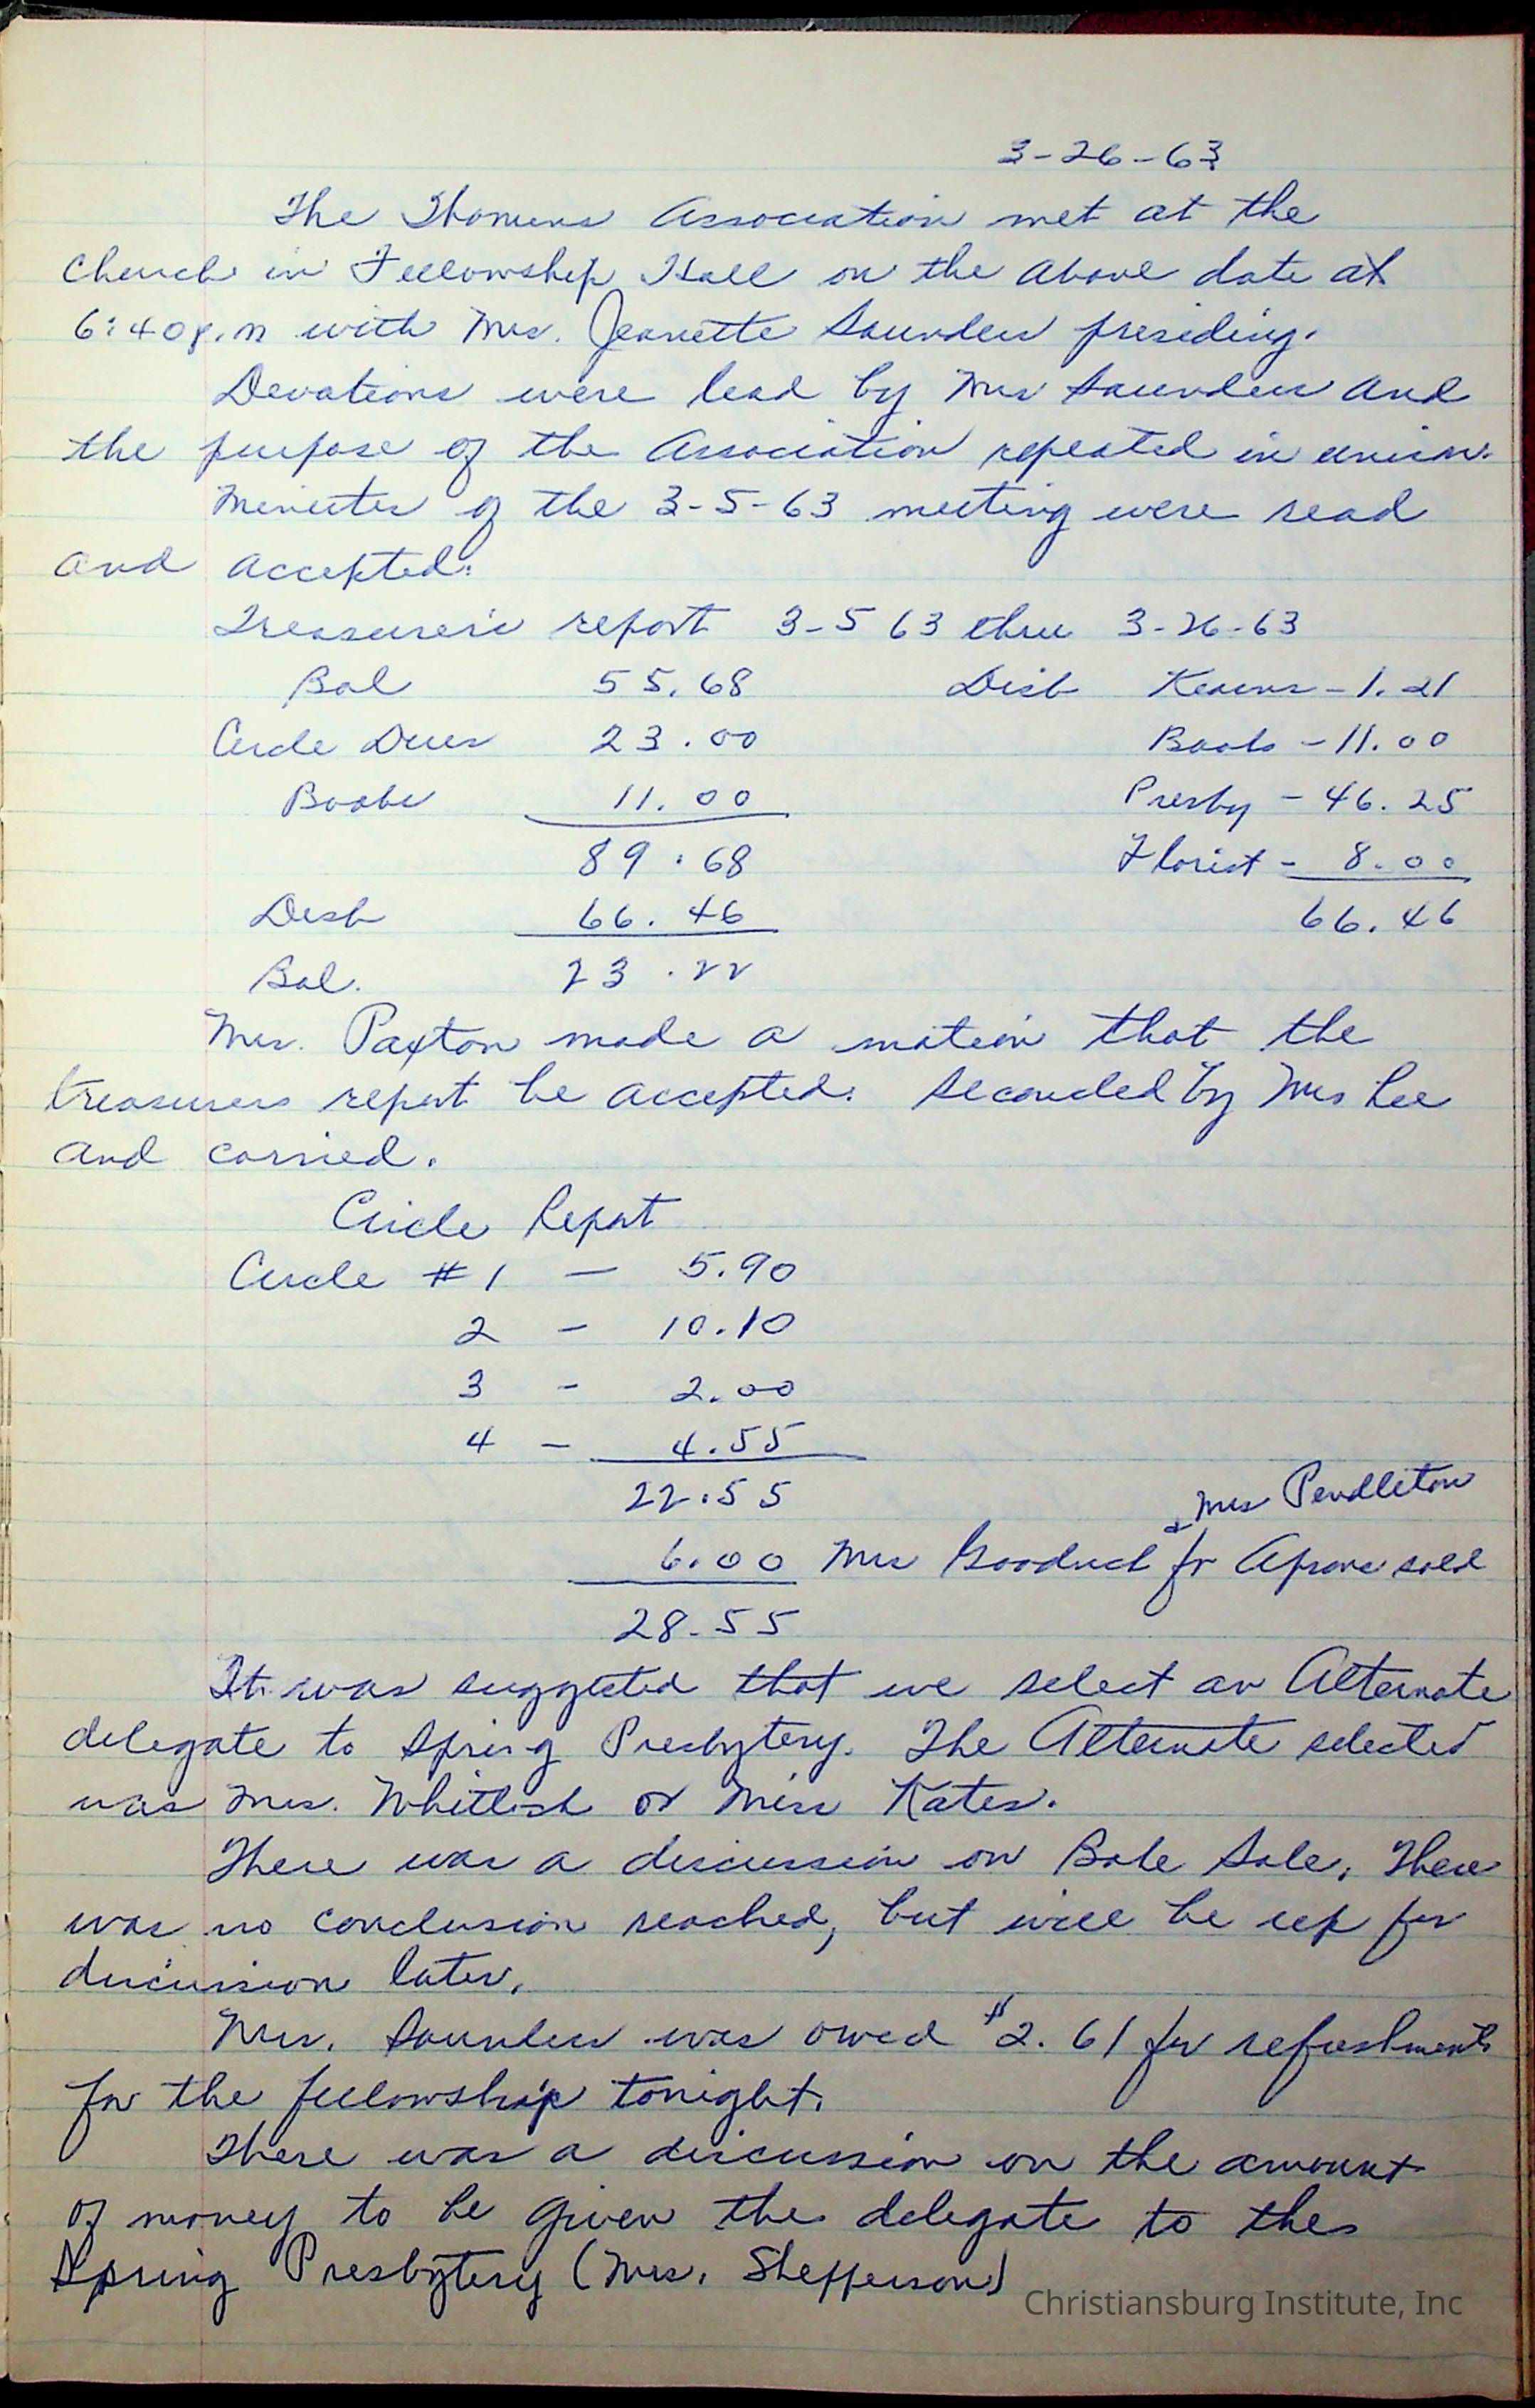 3-26-63
The Womens Association met at the
Church in Fellowship Hall on the above date at
6:40 p.m with Mrs. Jeanette Saunders presiding.
Devotions were lead by Mrs Saunders and
the purpose of the Association repeated in unison.
Minutes of the 3-5-63 meeting were read
and accepted.
Treasurer's report 3-5 63 thru 3-26-63
Bal 55.68 Disb Kearns - 1.21
Circle Dues 23.00 Books - 11.00
Books 11.00 Presby - 46.25
89.68 Florist - 8.00
Disb 66.46 66.46
Bal. 23.22
Mrs. Paxton made a motion that the
treasurers report be accepted. Seconded by Mrs Lee
and carried.
Circle Report
Circle #1 - 5.90
2 - 10.10
3 - 2.00
4 - 4.55
22.55
& Mrs Pendleton
6.00 Mrs for Aprons sold
28.55
It was suggested that we select an Alternate
delegate to Spring Presbytery. The Alternate selected
was Mrs. or Miss Kates.
There was a discussion on Bake Sale. There
was no conclusion reached, but will be up for
discussion later.
Mrs. Saunders was owed $2.61 for refreshments
for the fellowship tonight.
There was a discussion on the amount
of money to be given the delegate to the
Spring Presbytery (Mrs. Shefferson)
Christiansburg Institute, Inc